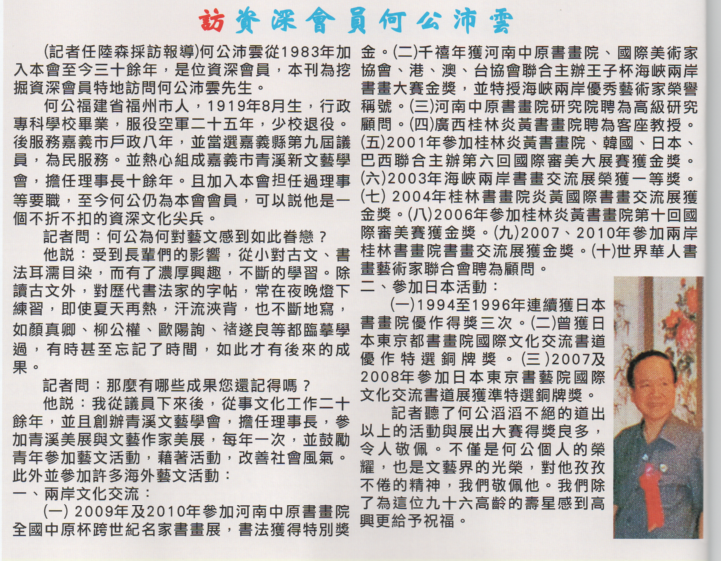 訪資深會員何公沛雲
(記者任陸森採訪報導)何公沛雲從1983年加
入本會至今三十餘年，是位資深會員，本刊為挖
掘資深會員特地訪問何公沛雲先生。
何公福建省福州市人，1919年8月生，行政
專科學校畢業，服役空軍二十五年，少校退役。
後服務嘉義市戶政八年，並當選嘉義縣第九屆議
員，為民服務。並熱心組成嘉義市青溪新文藝學
會，擔任理事長十餘年。且加入本會担任過理事
等要職，至今何公仍為本會會員，可以説他是一
個不折不扣的資深文化尖兵。
記者問：何公為何對藝文感到如此眷戀？
他説：受到長輩們的影響，從小對古文、書
法耳濡目染，而有了濃厚興趣，不斷的學習。除
讀古文外，對歷代書法家的字帖，常在夜晚燈下
練習，即使夏天再熱，汗流浹背，也不斷地寫，
如顏真卿、柳公權、歐陽詢、褚遂良等都臨摹學
過，有時甚至忘記了時間，如此才有後來的成
果。
記者問：那麼有哪些成果您還記得嗎？
他説：我從議員下來後，從事文化工作二十
餘年，並且創辦青溪文藝學會，擔任理事長，參
加青溪美展與文藝作家美展，每年一次，並鼓勵
青年參加藝文活動，藉著活動，改善社會風氣。
此外並參加許多海外藝文活動：
一、兩岸文化交流：
(一) 2009年及2010年參加河南中原書畫院
全國中原杯跨世紀名家書畫展，書法獲得特別獎
金。(二)千禧年獲河南中原書畫院、國際美術家
協會、港、澳、台協會聯合主辦王子杯海峽兩岸
書畫大賽金獎，並特授海峽兩岸優秀藝術家榮譽
稱號。(三)河南中原書畫院研究院聘為高級研究
顧問。(四)廣西桂林炎黃書畫院聘為客座教授。
(五)2001年參加桂林炎黃書畫院、韓國、日本、
巴西聯合主辦第六回國際審美大展賽獲金獎。
(六)2003年海峽兩岸書畫交流展榮獲一等獎。
(七) 2004年桂林書畫院炎黃國際書畫交流展獲
金獎。(八)2006年參加桂林炎黃書畫院第十回國
際審美賽獲金獎。(九)2007、2010年參加兩岸
桂林書畫院書畫交流展獲金獎。(十)世界華人書
畫藝術家聯合會聘為顧問。
二、參加日本活動：
(一)1994至1996年連續獲日本
書畫院優作得獎三次。(二)曾獲日
本東京都書畫院國際文化交流書道
優作特選銅牌獎。(三)2007及
2008年參加日本東京書藝院國際
文化交流書道展獲準特選銅牌獎。
記者聽了何公滔滔不絕的道出
以上的活動與展出大賽得獎良多，
令人敬佩。不僅是何公個人的榮
耀，也是文藝界的光榮，對他孜孜
不倦的精神，我們敬佩他。我們除
了為這位九十六高齡的壽星感到高
興更給予祝福。